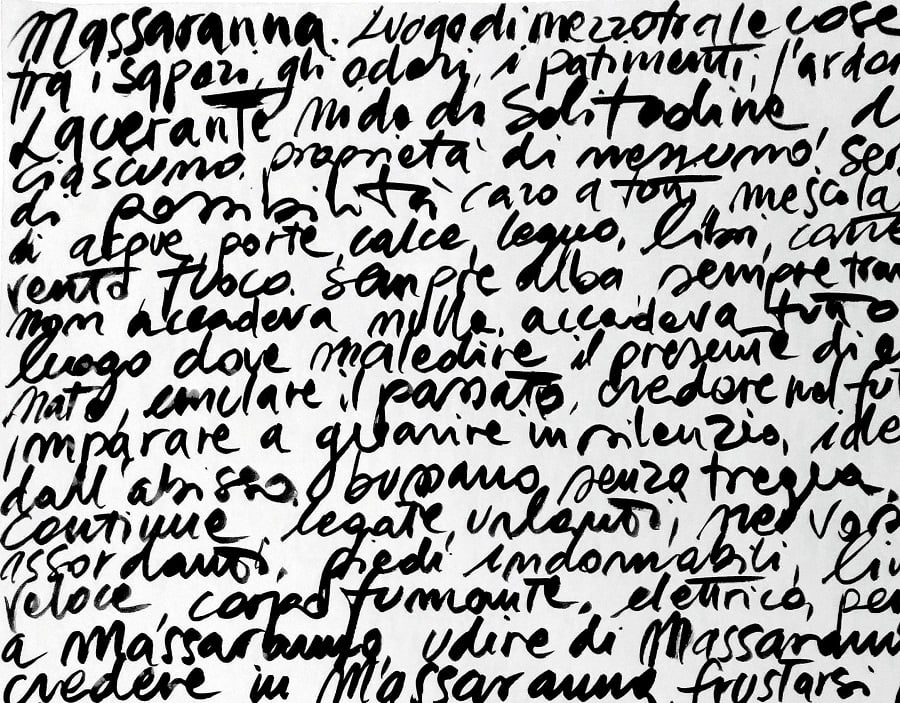 Massaranna. Luogo di mezzo tra le cose
tra i sapori, gli odori, i patimenti, l'ardor
Lacerante nido di Solitudine d
ciascuno. proprietà di nessuno! ser
di possibilità caro a tutti mescola
di acque, porte, calce, legno, libri, carte
vento fuoco. sempre alba sempre tram
non accadeva nulla. accadeva tutto
luogo dove maledire il presente di e
nato, emulare il passato, credere nel fut
imparare a guarire in silenzio, idee
dall'abisso bussano senza tregua,
continue, legate, urlanti, nel
assordanti, piedi indomabili, lin
veloce, corpo fumante, elettrico, pe
a Massaranna, udire di Massarann
credere in Massaranna frustarsi